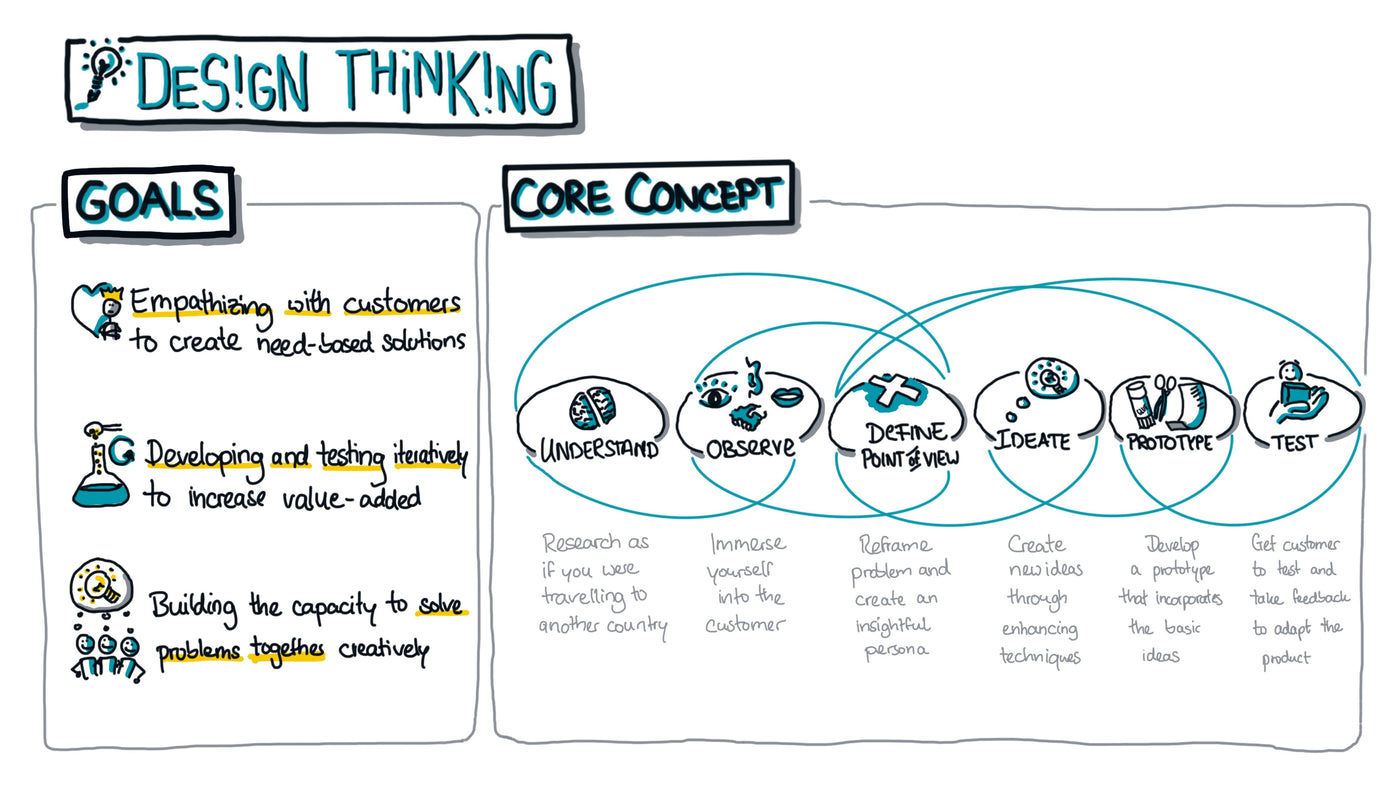 DESIGN THINKING
GOALS
Empathizing with customers
to create need-based solutions
Developing and testing iteratively
to increase value-added
Building the capacity to solve
problems together creatively
CORE CONCEPT
UNDERSTAND
Research as
if you were
travelling to
another country
OBSERVE
Immerse
yourself
into the
customer
DEFINE
POINT of VIEW
Reframe
problem and
create an
insightful
persona
IDEATE
Create
new ideas
through
enhancing
techniques
PROTOTYPE
Develop
a prototype
that incorporates
the basic
ideas
TEST
Get customer
to test and
take feedback
to adapt the
product